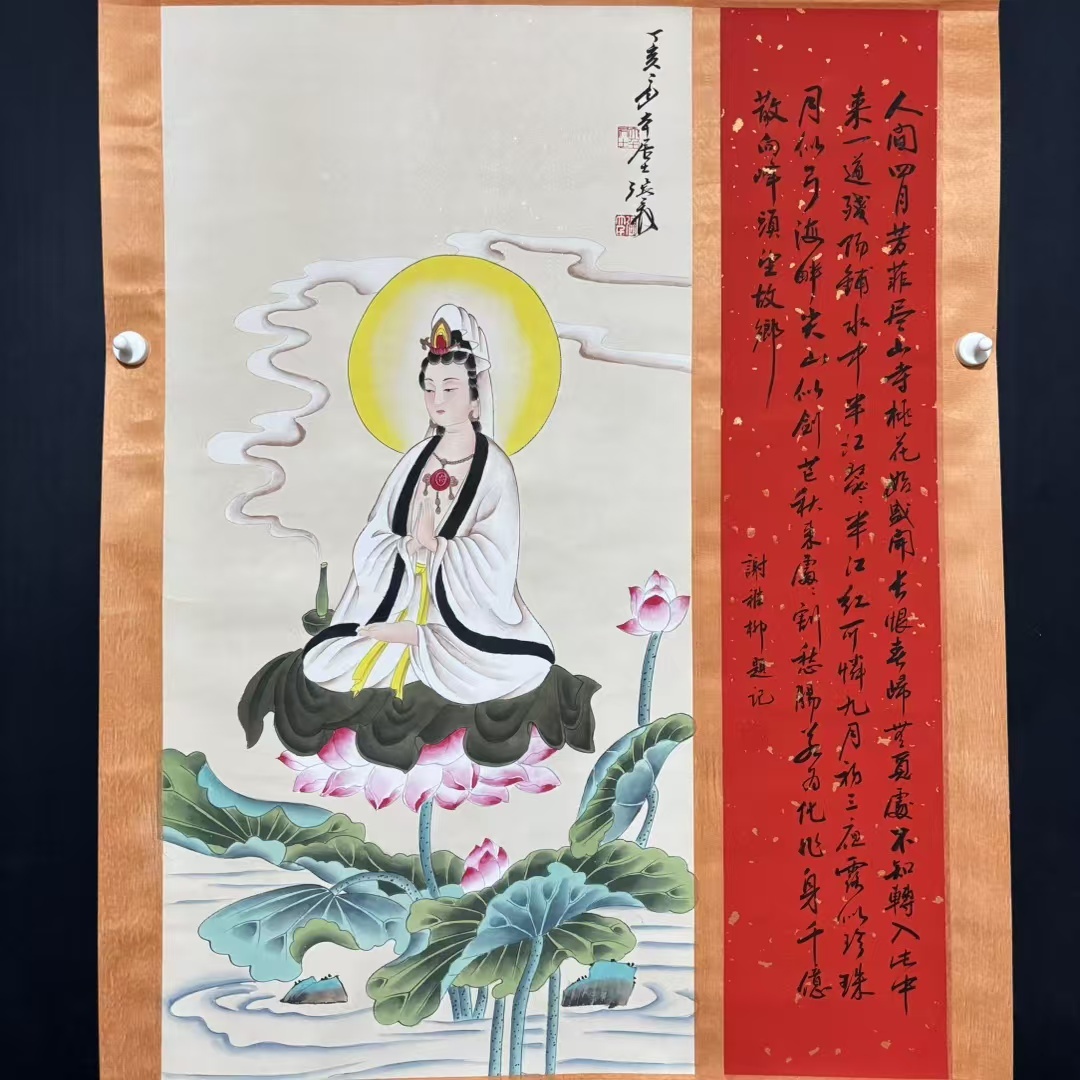 人間四月芳菲尽山寺桃花始盛開长恨春歸無覓處不知轉入此中
来一道殘陽鋪水中半江瑟〻半江紅可憐九月初三夜露似珍珠
月似弓海畔尖山似劍芒秋来處〻割愁腸若為化作身千億
散向峰頭望故鄉
謝稚柳題記
丁亥居士張爰